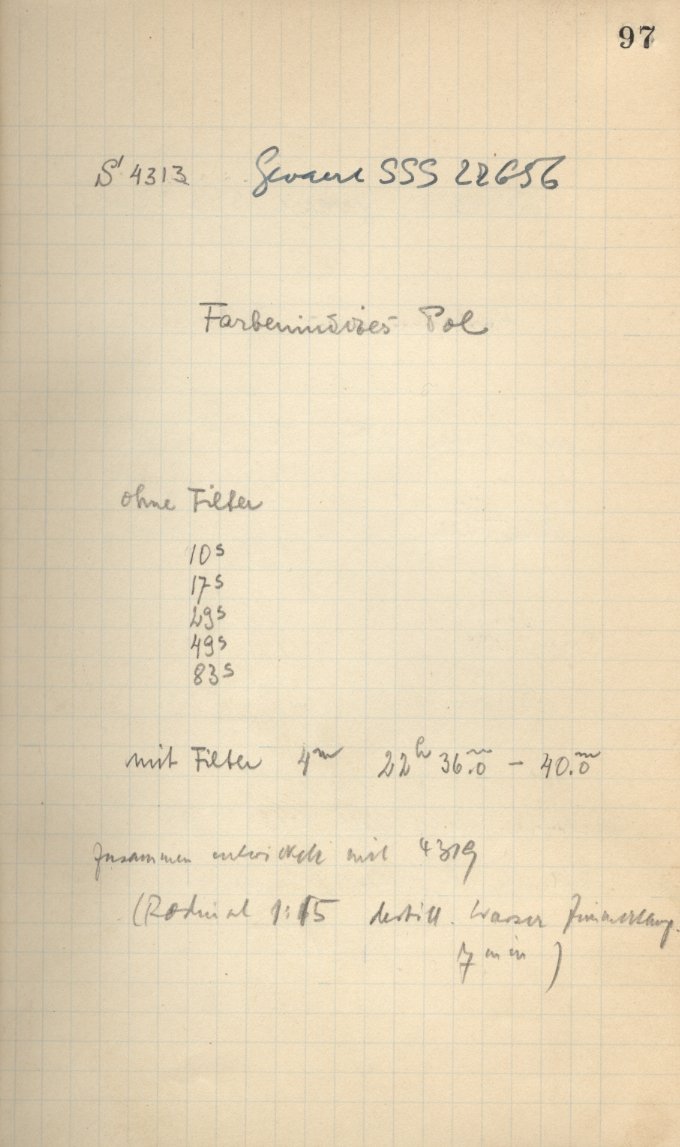 97
S 4313 Gevaert SSS 22656
Farbenindizes Pol
ohne Filter
10s
17s
29s
49s
83s
mit Filter 4m 22h 36.m0 – 40.m0
zusammen entwickelt mit 4319
(Rodinal 1:15 destill. Wasser Zimmertemp.
7 min)